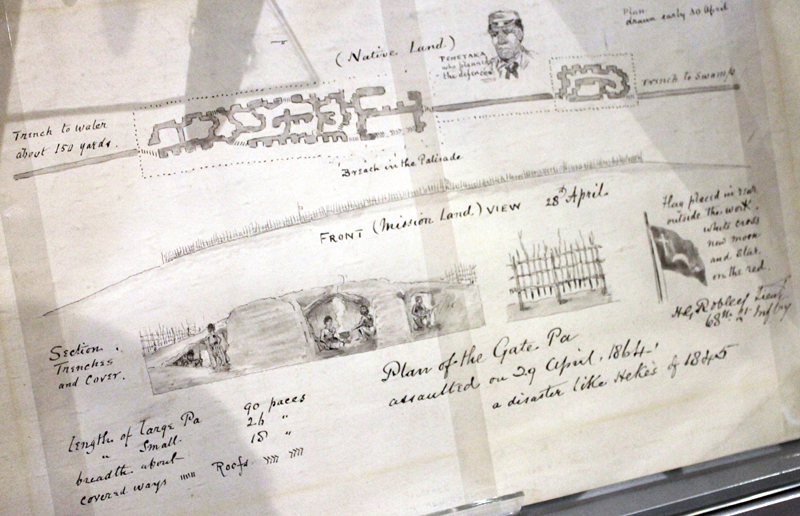 Plan
drawn early 30 April
(Native Land.)
PENETAKA
who planned
the defences
Trench to Swamp
Trench to water
about 150 yards.
Breach in the Palisade
FRONT (Mission Land.) VIEW 28th April
Flag placed in rear
outside the work.
white cross
new moon
and Star.
on the red.
H.G. Robley Lieut
68th Lt Inftry
Section.
Trenches
and Cover.
Plan of the Gate Pa
assaulted on 29 April. 1864!
a disaster like Heke's of 1845
length of large Pa 90 paces
" Small. 26 "
breadth about 18 "
covered ways Roofs